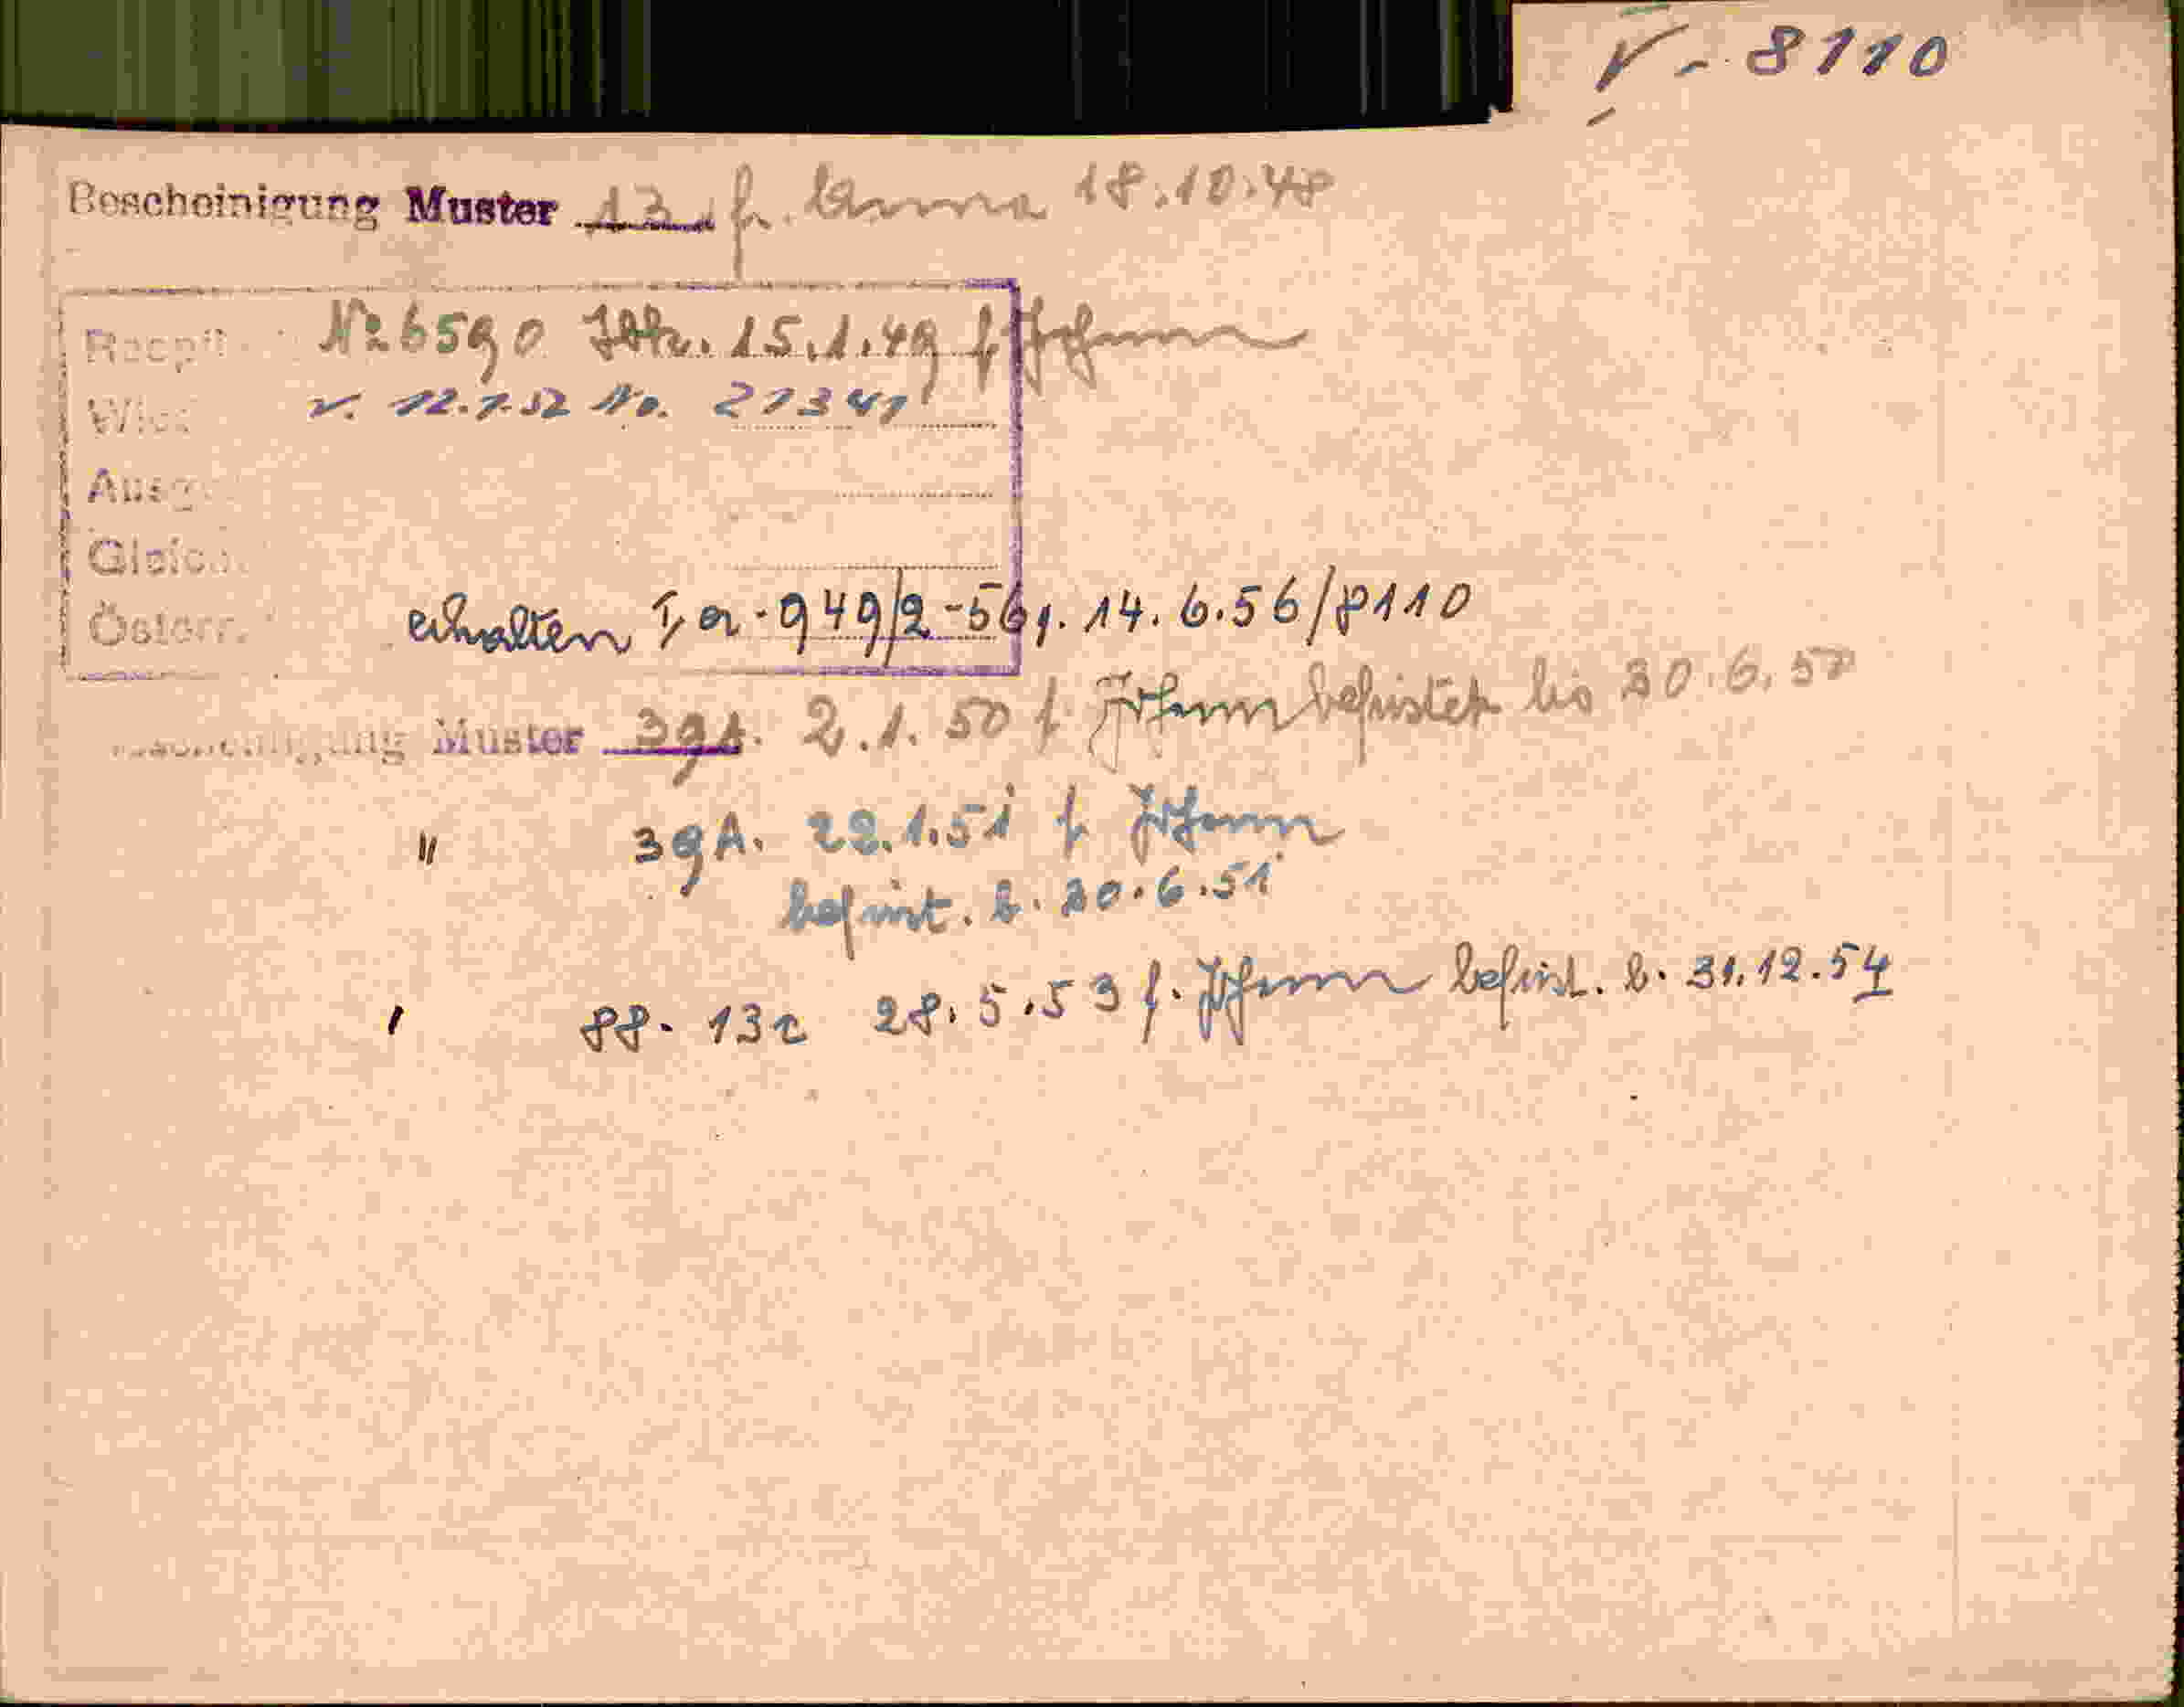 V - 8110
Bescheinigung Muster 13 f. Anna 18.10.48
Rezpf. № 6590 Joh. 15.1.49 f Johann
v. 12.1.52 No. 21341
Ausg
Gleich
Österr. erhalten I, a - 949/2-56, . 14.6.56/8110
Muster 39A. 2.1.50 f Johann befristet bis 30.6.50
" 39A. 22.1.51 f Johann
befrist. b. 30.6.51
" 88. 13c 28.5.53 f. Johann befrist. b. 31.12.54